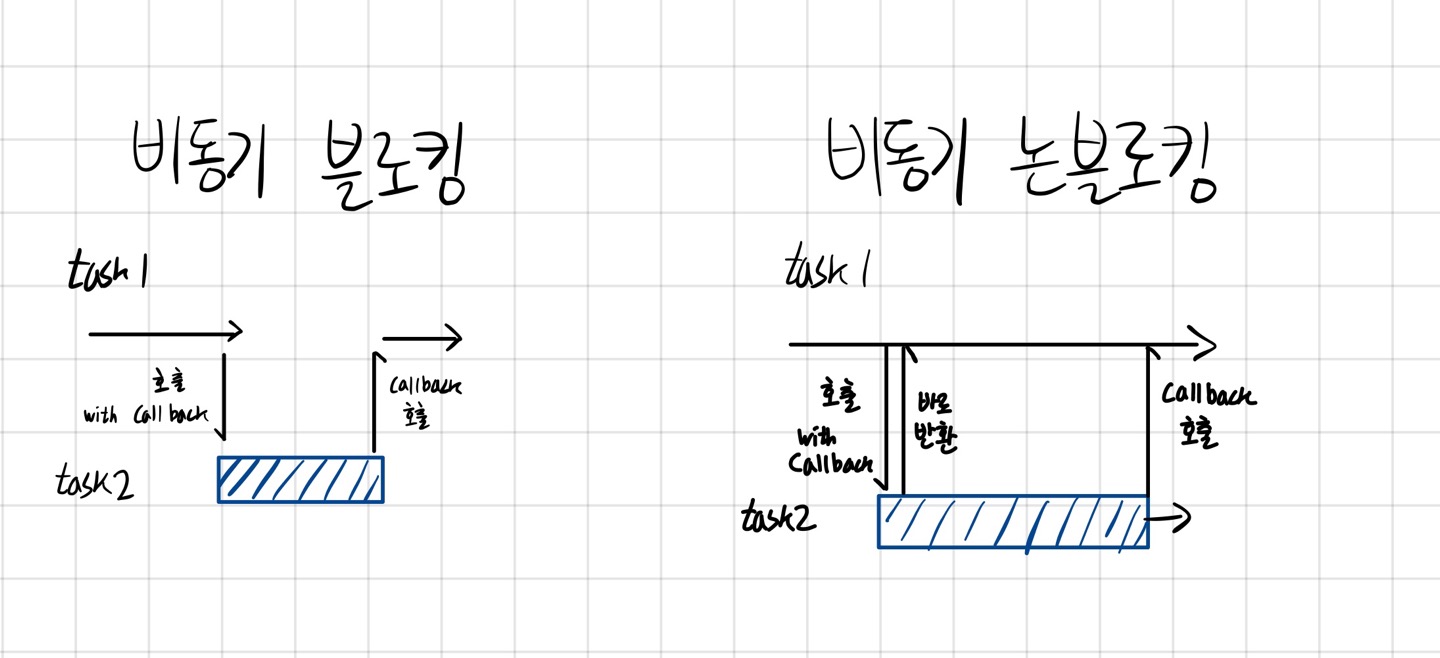 비동기 블로킹
task1
호출
with Callback
Callback
호출
task2
비동기 논블로킹
task1
호출
with
Callback
바로
반환
Callback
호출
task2